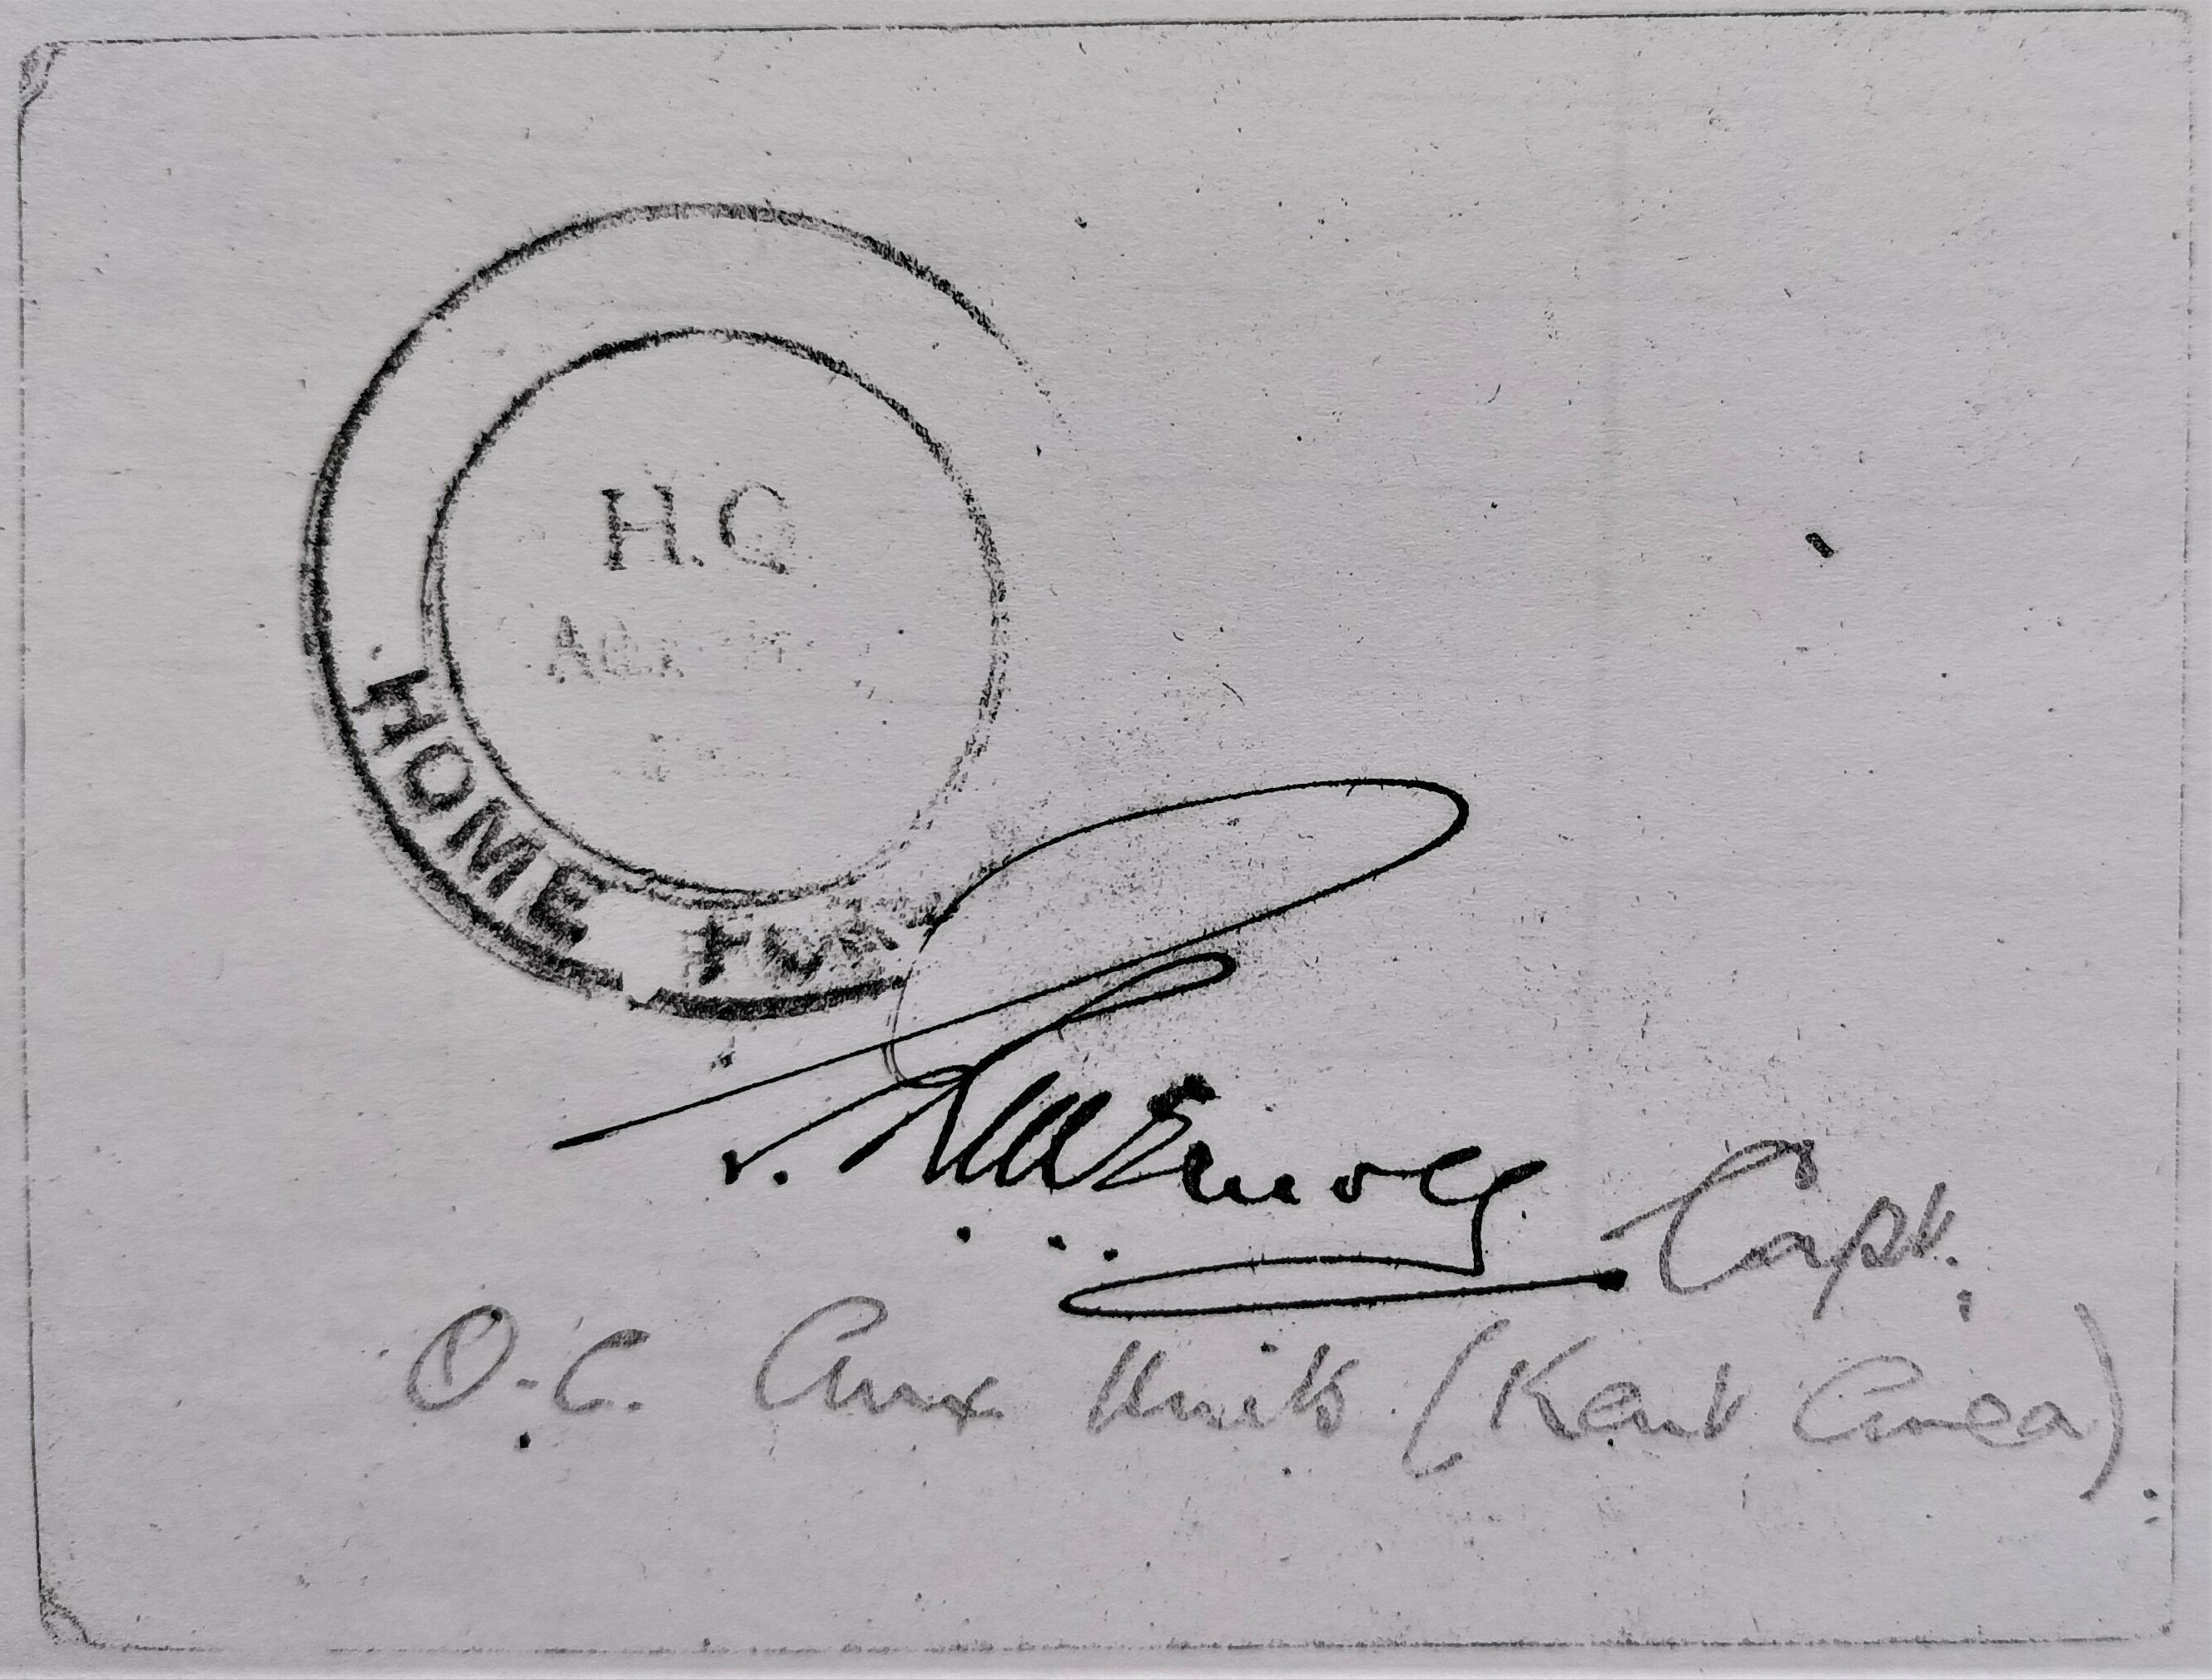 H.Q
HOME FOR
Capt.
O.C. Aux Units (Kent Area).